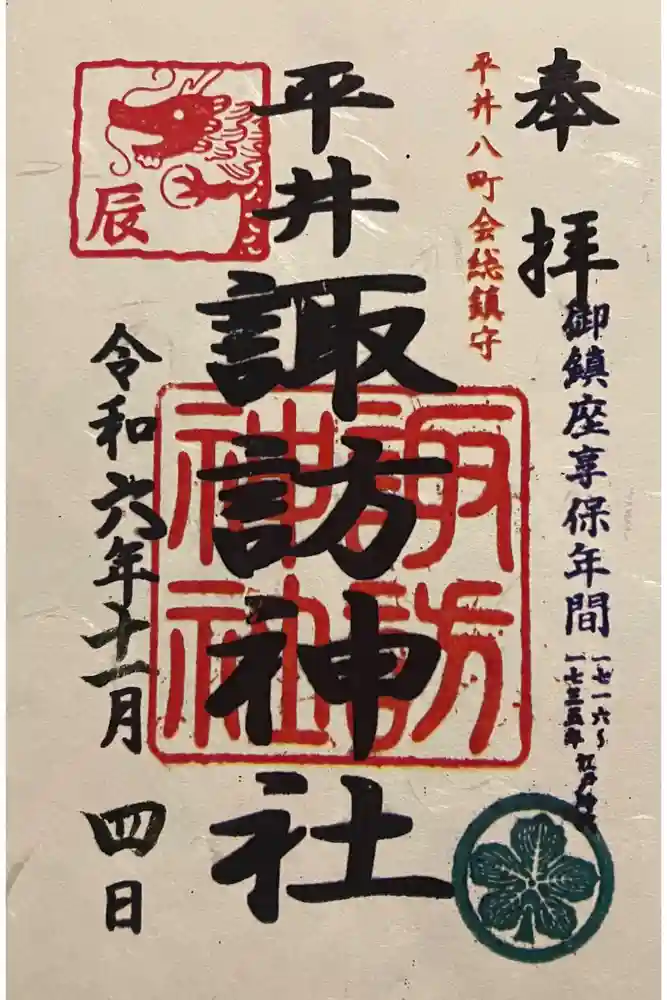 奉拝
御鎮座享保年間
一七一六〜
一七三五年
平井八町会総鎮守
平井諏訪神社
諏訪
神社
辰
令和六年十一月四日